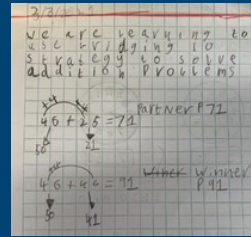 we are learning to
use bridging 10
strategy to solve
addition problems
+4
46+25=71 Partner P 71
50 21
46+45=91 winner
P 91
50 41